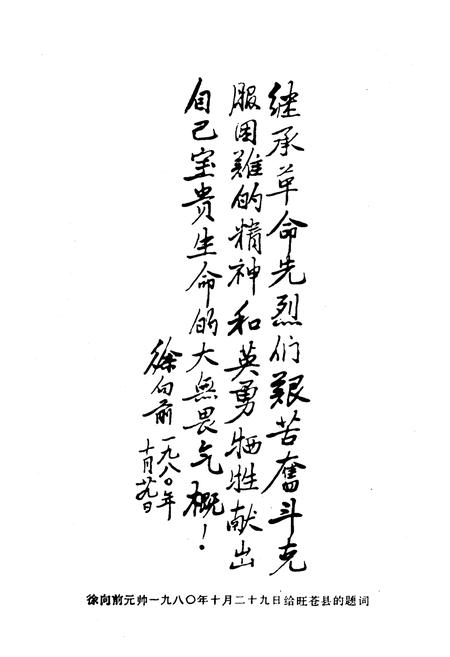 继承革命先烈们艰苦奋斗克
服困難的精神和英勇牺牲献出
自己宝贵生命的大無畏气概！
徐向前 一九八〇年
十月廿九日
徐向前元帅一九八〇年十月二十九日给旺苍县的题词